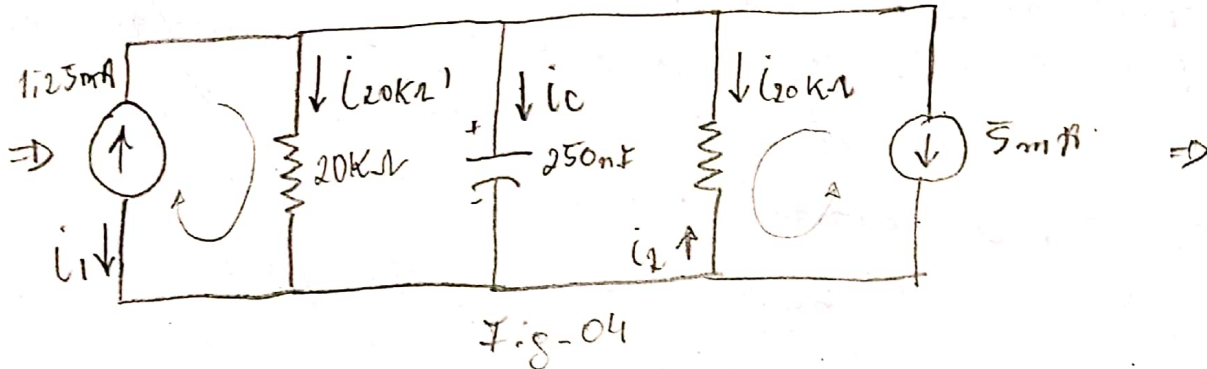 1.25mA
⇒
i₁ ↓
↓ i20KΩ'
20KΩ
↓ ic
+
250nF
-
↓ i20KΩ
i₂ ↑
5mA
⇒
Fig-04